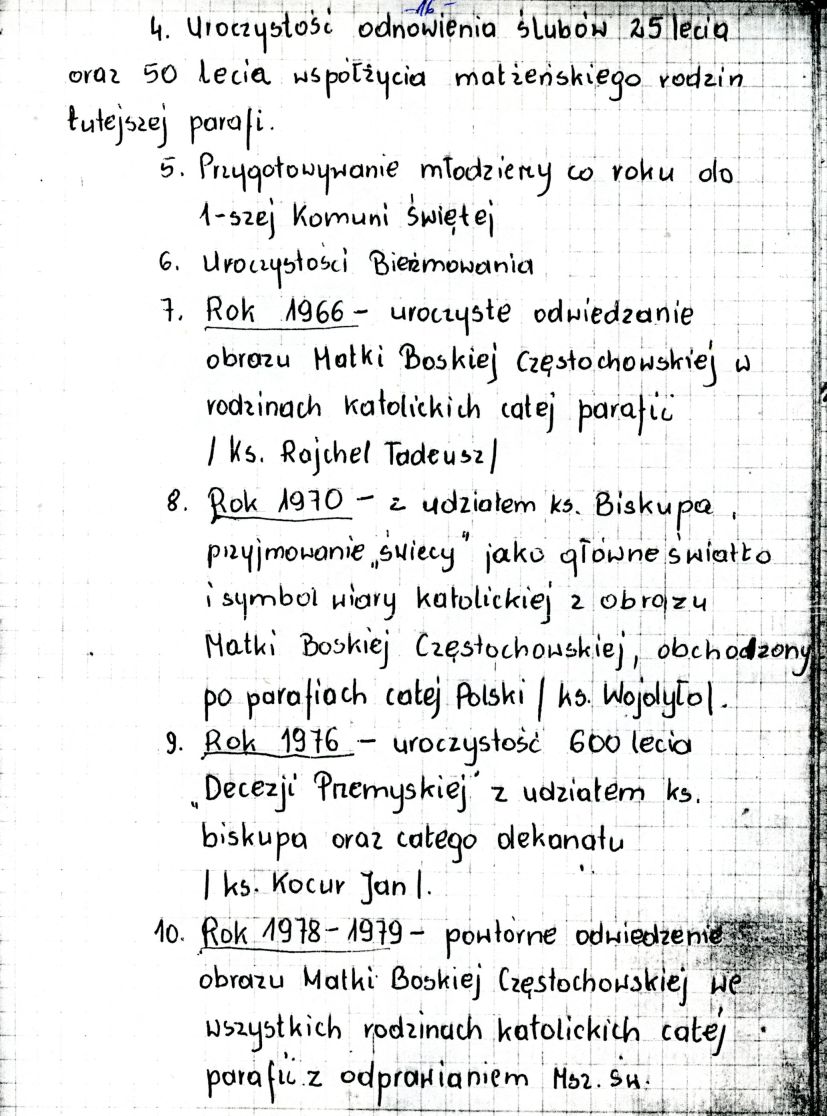 -16-
4. Uroczystość odnowienia ślubów 25 lecia
oraz 50 lecia współżycia małżeńskiego rodzin
tutejszej parafi.
5. Przygotowywanie młodzierzy co roku do
1-szej Komuni świętej
6. Uroczystości Bierzmowania
7. Rok 1966 - uroczyste odwiedzanie
obrazu Matki Boskiej Częstochowskiej w
rodzinach katolickich całej parafii
/ ks. Rajchel Tadeusz/
8. Rok 1970 - z udziałem ks. Biskupa,
przyjmowanie „świecy" jako główne światło
i symbol wiary katolickiej z obrazu
Matki Boskiej Częstochowskiej, obchodzony
po parafiach całej Polski / ks. Wojdyło/.
9. Rok 1976 - uroczystość 600 lecia
„Decezji Przemyskiej" z udziałem ks.
biskupa oraz całego dekanatu
/ ks. Kocur Jan/.
10. Rok 1978-1979 - powtórne odwiedzenie
obrazu Matki Boskiej Częstochowskiej we
wszystkich rodzinach katolickich całej
parafii z odprawianiem Msz. św.